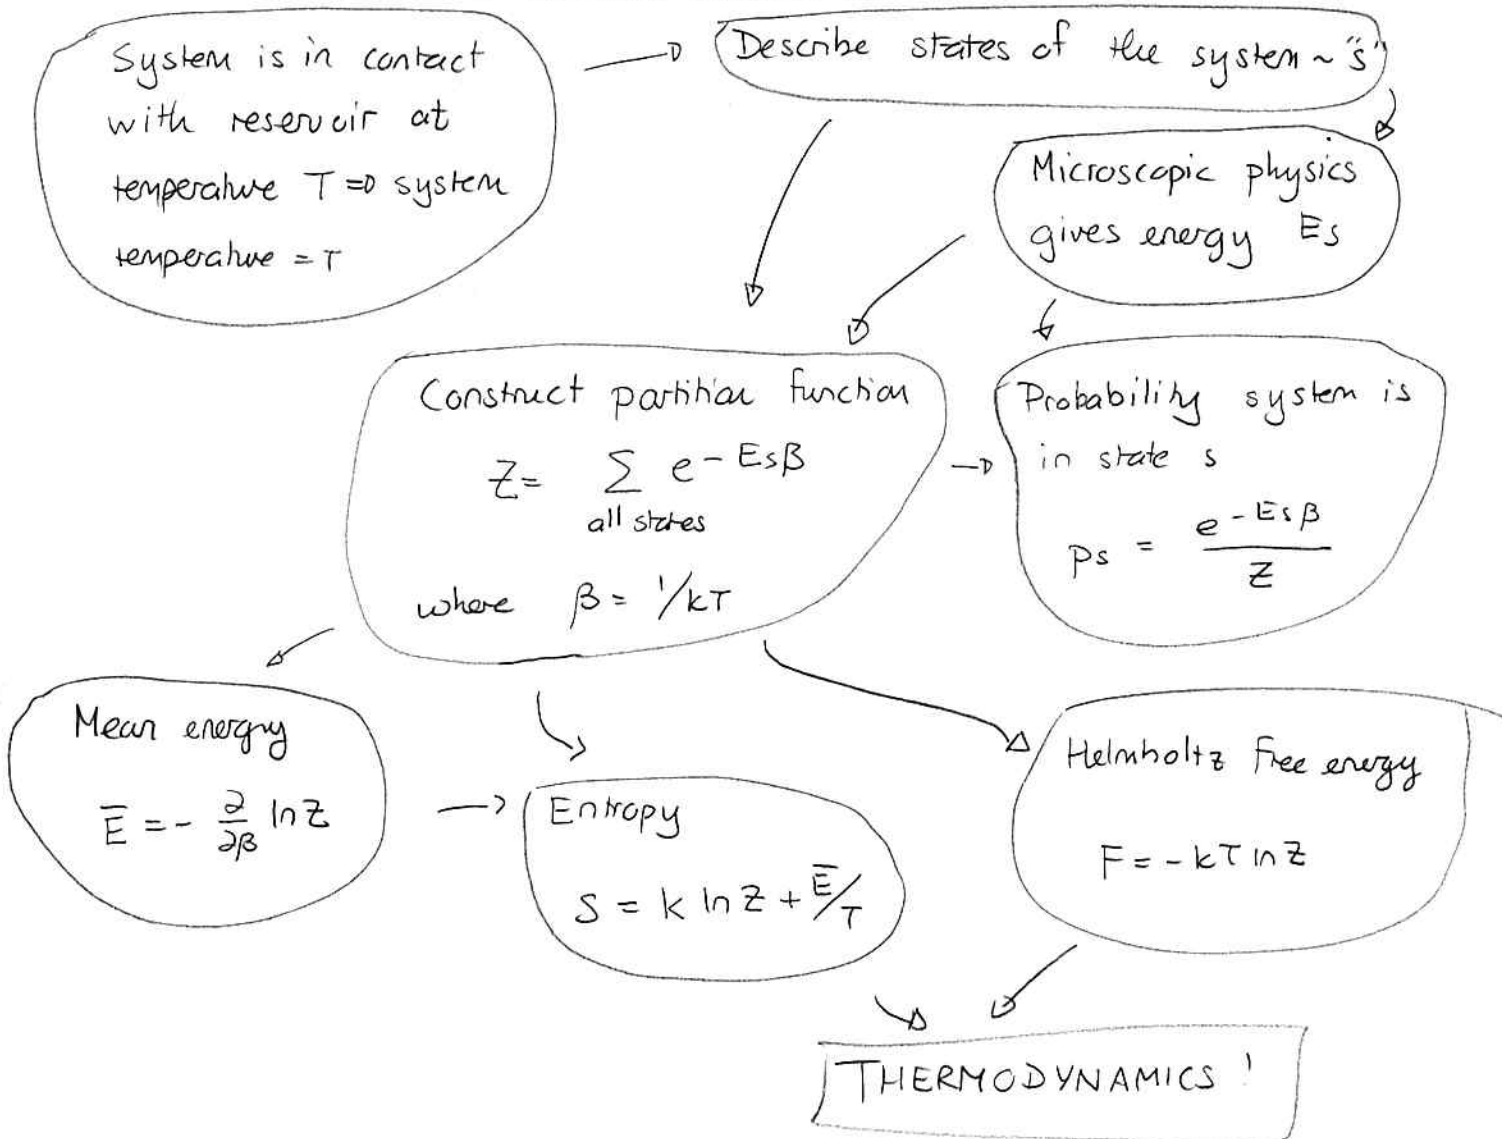 System is in contact
with reservoir at
temperature T ⇒ system
temperature = T
Describe states of the system ~ "s"
Microscopic physics
gives energy Es
Construct partition function
Z = ∑ e^{-Esβ}
all states
where β = 1/kT
Probability system is
in state s
ps = e^{-Esβ} / Z
Mean energy
E̅ = - ∂/∂β ln Z
Entropy
S = k ln Z + E̅/T
Helmholtz Free energy
F = - kT ln Z
THERMODYNAMICS !